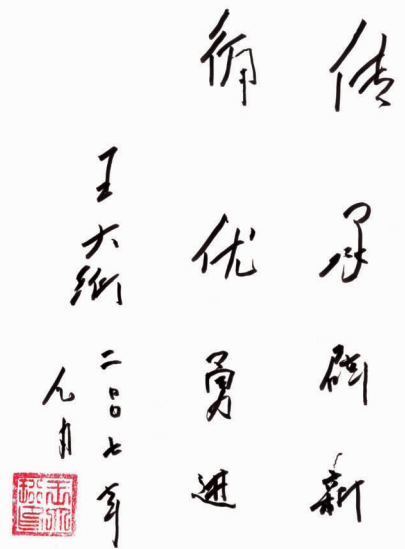 传承辟新
循优勇进
王大珩
二〇〇七年
九月